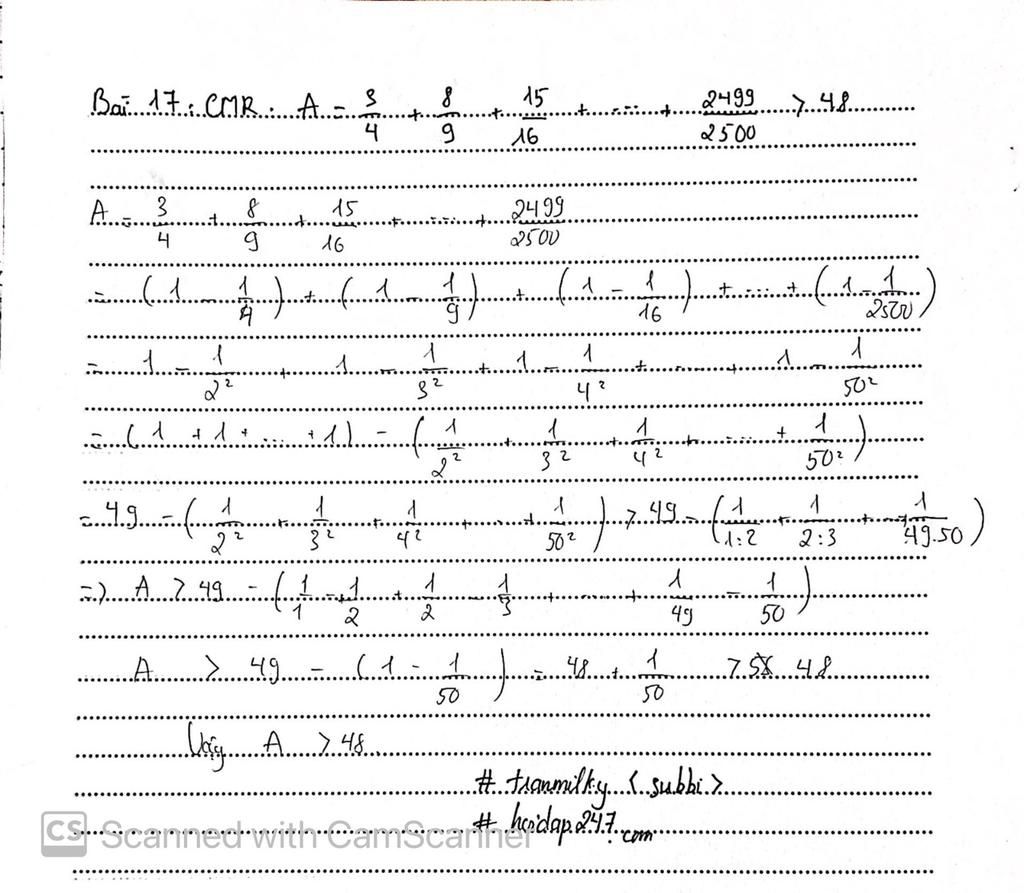 Bài 17: CMR: A = 3/4 + 8/9 + 15/16 + ... + 2499/2500 > 48
A = 3/4 + 8/9 + 15/16 + ... + 2499/2500
= (1 - 1/4) + (1 - 1/9) + (1 - 1/16) + ... + (1 - 1/2500)
= 1 - 1/2² + 1 - 1/3² + 1 - 1/4² + ... + 1 - 1/50²
= (1 + 1 + ... + 1) - (1/2² + 1/3² + 1/4² + ... + 1/50²)
= 49 - (1/2² + 1/3² + 1/4² + ... + 1/50²) > 49 - (1/1.2 + 1/2.3 + ... + 1/49.50)
=> A > 49 - (1/1 - 1/2 + 1/2 - 1/3 + ... + 1/49 - 1/50)
A > 49 - (1 - 1/50) = 48 + 1/50 > 48
Vậy A > 48
# tranmilky < subbi >
# hoidap247.com
CS Scanned with CamScanner